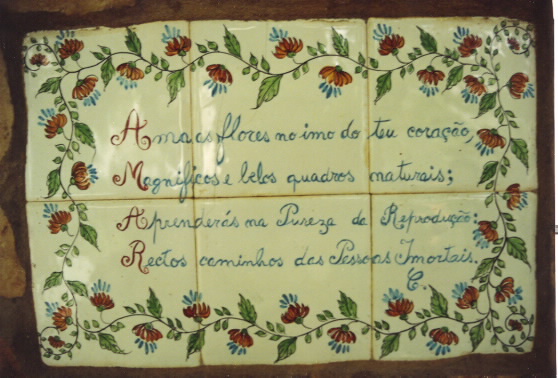 Ama as flores no imo do teu coração,
Magnificos e belos quadros naturais;
Aprenderás na Pureza da Reprodução:
Rectos caminhos das Pessoas Imortais.
C.